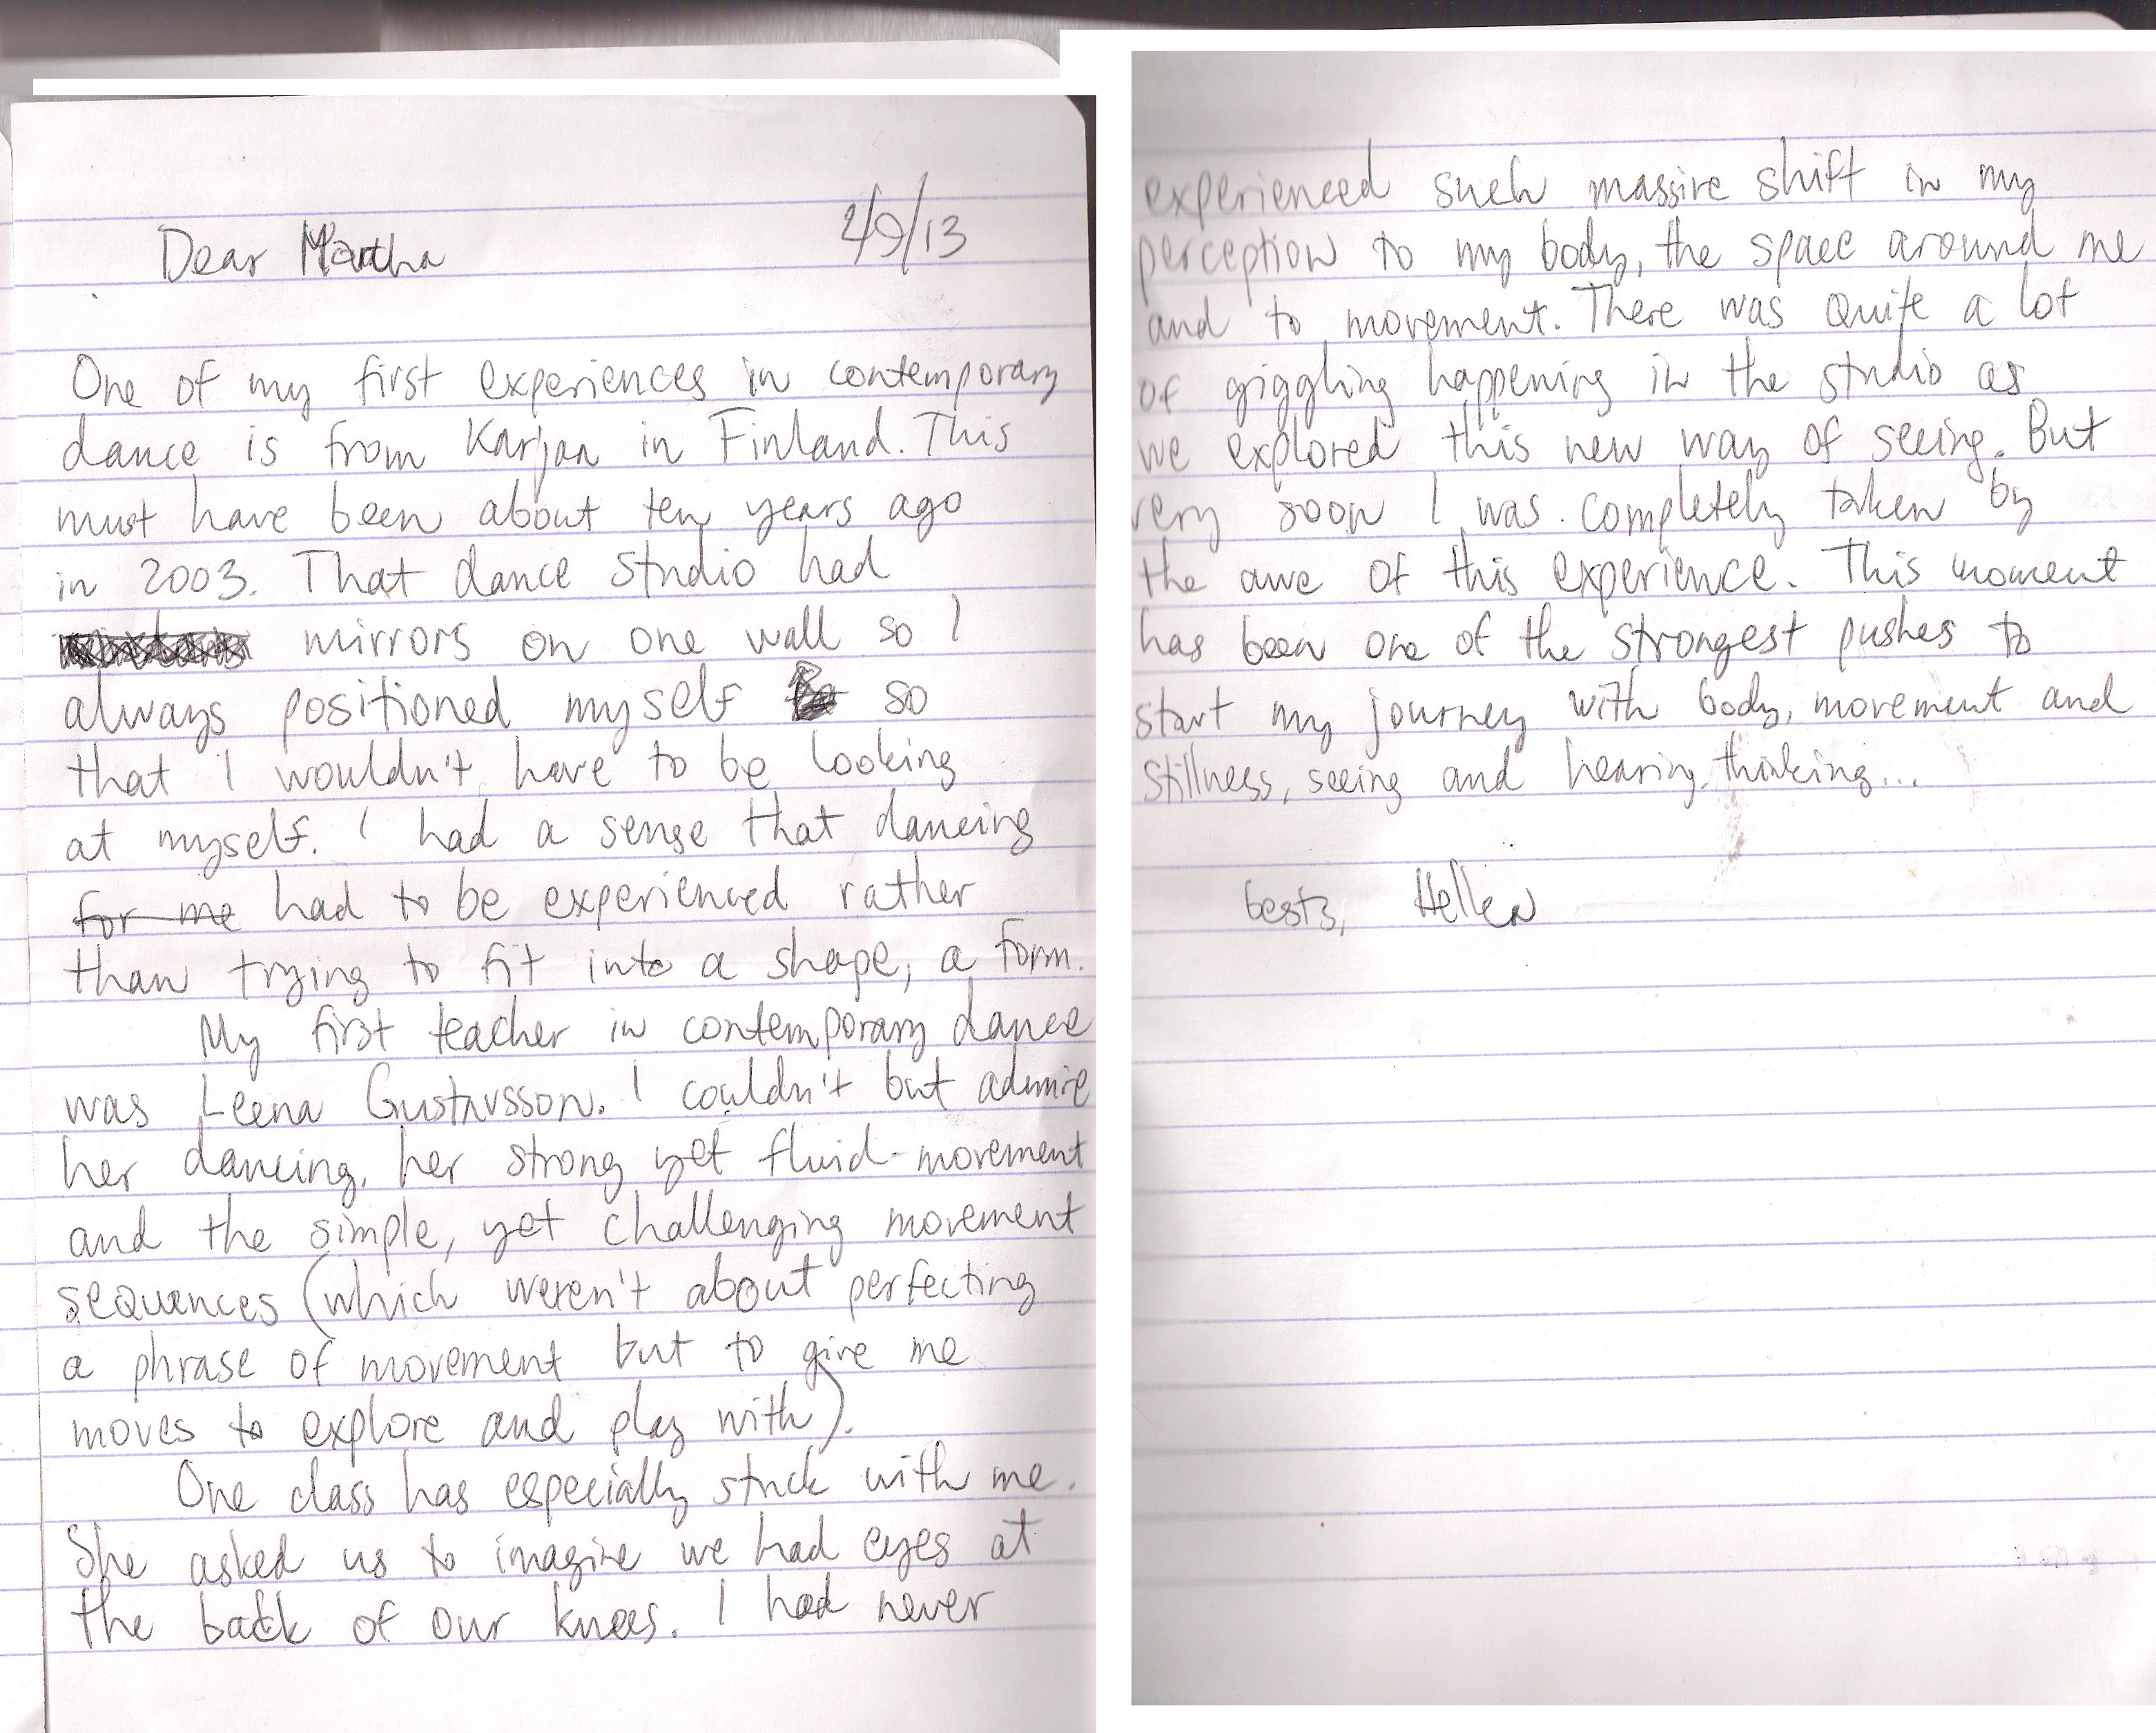 Dear Martha 2/9/13
One of my first experiences in contemporary
dance is from Karjaa in Finland. This
must have been about ten years ago
in 2003. That dance studio had
mirrors on one wall so I
always positioned myself so
that I wouldn't have to be looking
at myself. I had a sense that dancing
for me had to be experienced rather
than trying to fit into a shape, a form.
My first teacher in contemporary dance
was Leena Gustavsson. I couldn't but admire
her dancing, her strong yet fluid movement
and the simple, yet challenging movement
sequences (which weren't about perfecting
a phrase of movement but to give me
moves to explore and play with).
One class has especially stuck with me.
She asked us to imagine we had eyes at
the back of our knees. I had never
experienced such massive shift in my
perception to my body, the space around me
and to movement. There was quite a lot
of giggling happening in the studio as
we explored this new way of seeing. But
very soon I was completely taken by
the awe of this experience. This moment
has been one of the strongest pushes to
start my journey with body, movement and
stillness, seeing and hearing, thinking...
bests, Hellen